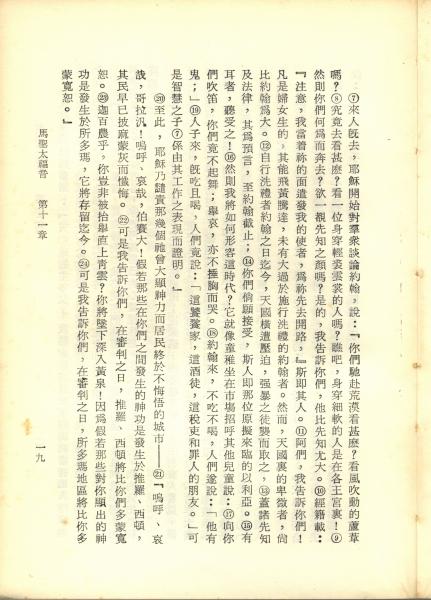 ⑦來人既去，耶穌開始對羣衆談論約翰，說：『你們馳赴荒漠看甚麽？看風吹動的蘆葦
嗎？⑧究竟去看甚麽？看一位身穿輕裘雲裳的人嗎？瞧吧，身穿細軟的人是在各王宮裏！⑨
然則你們何爲而奔去？欲一覩先知之顏嗎？是的，我告訴你們，他比先知尤大。⑩經籍載：
『注意，我當着祢的面遣發我的使者，爲祢先去開路，』斯卽其人。⑪阿們，我告訴你們！
凡是婦女生的，其能飛黃騰達，未有大過於施行洗禮的約翰者。然而，天國裏的卑微者，尙
比約翰爲大。⑫自行洗禮者約翰之日迄今，天國橫遭壓迫，强暴之徒襲而取之，⑬蓋諸先知
及法律，其爲預言，至約翰截止；⑭你們倘願接受，斯人卽那位原擬來臨的以利亞。⑮有
耳者，聽受之！⑯然則我將如何形容這時代？它就像童稚坐在市場招呼其他兒童說：⑰向你
們吹笛，你們竟不起舞；舉哀，亦不捶胸而哭。⑱約翰來，不吃不喝，人們遂說：「他有
鬼；」⑲人子來，旣吃且喝，人們竟說：「這饕餮家，這酒徒，這稅吏和罪人的朋友。」可
是智慧之子⑦係由其工作之表現而證明。』
⑳至此，耶穌乃譴責那幾個祂曾大顯神力而居民終於不悔悟的城市——㉑『嗚呼、哀
哉，哥拉汎！嗚呼、哀哉，伯賽大！假若那些在你們之間發生的神功是發生於推羅、西頓，
其民早已披麻蒙灰而懺悔。㉒可是我告訴你們，在審判之日，推羅、西頓將比你們多蒙寬
恕。㉓迦百農乎，你豈非被抬舉直上青雲？你將墜下深入黃泉！因爲假若那些對你顯出的神
功是發生於所多瑪，它將存留迄今。㉔可是我告訴你們，在審判之日，所多瑪地區將比你多
蒙寬恕。』
馬聖太福音　第十一章
一九